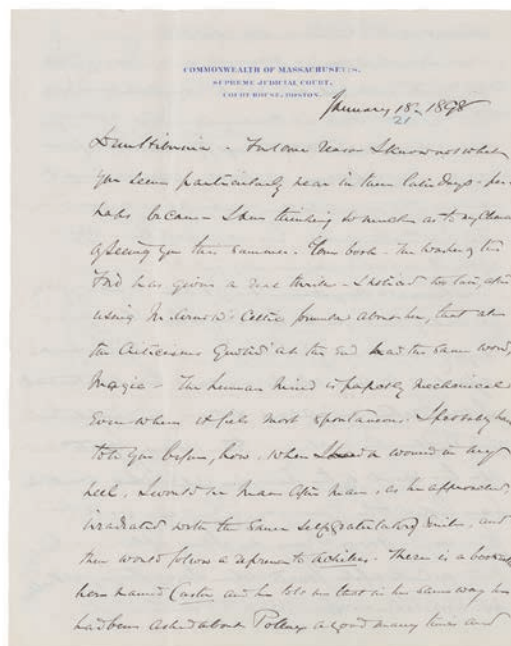 COMMONWEALTH OF MASSACHUSETTS,
SUPREME JUDICIAL COURT,
COURT HOUSE, BOSTON.
January 18 - 1898
21
Dear Hibernia - For some reason I know not what
you seem particularly near in these latter days - per-
haps because I am thinking so much as to my chance
of seeing you this summer. Your book - The
has given a thrill - I noticed too late, after
using Mr Arnold's Celtic formula about her, that
the criticisms quoted at the end had the same word,
Magic - The human mind is mechanical
Even when it feels most spontaneous. I probably have
told you before, how, when I had a wound in my
heel, I would see man after man, as he approached,
irradiated with the same self gratulatory smile, and
then would follow a reference to Achilles. There is a
here named Castor and he told me that in the same way he
had been asked about Pollux a good many times and